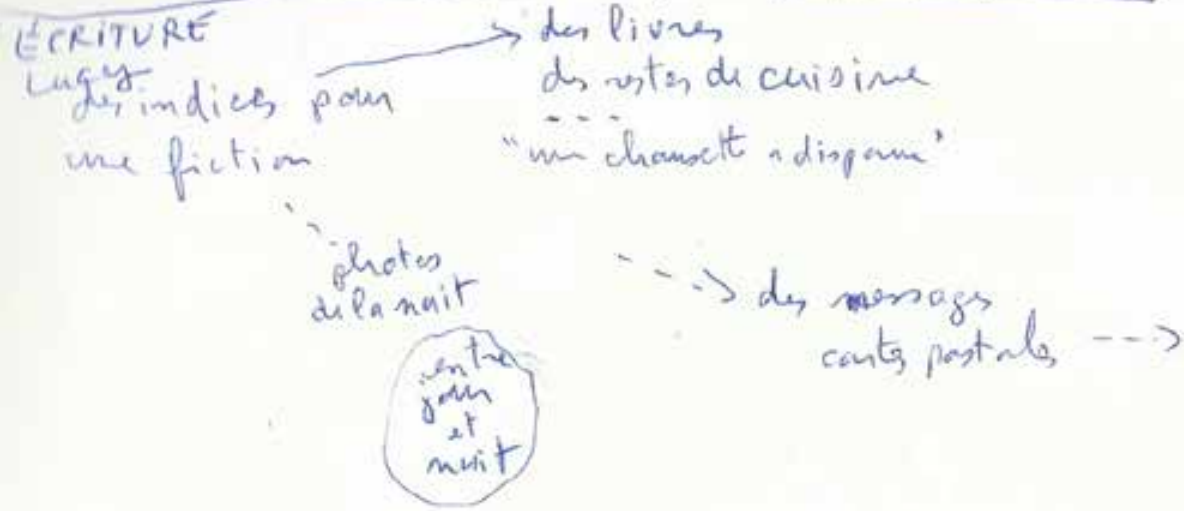 ÉCRITURE
des indices pour
une fiction
des livres
des restes de cuisine
"un chaussette a disparu"
photos
de la nuit
entre
jour
et
nuit
des messages
cartes postales